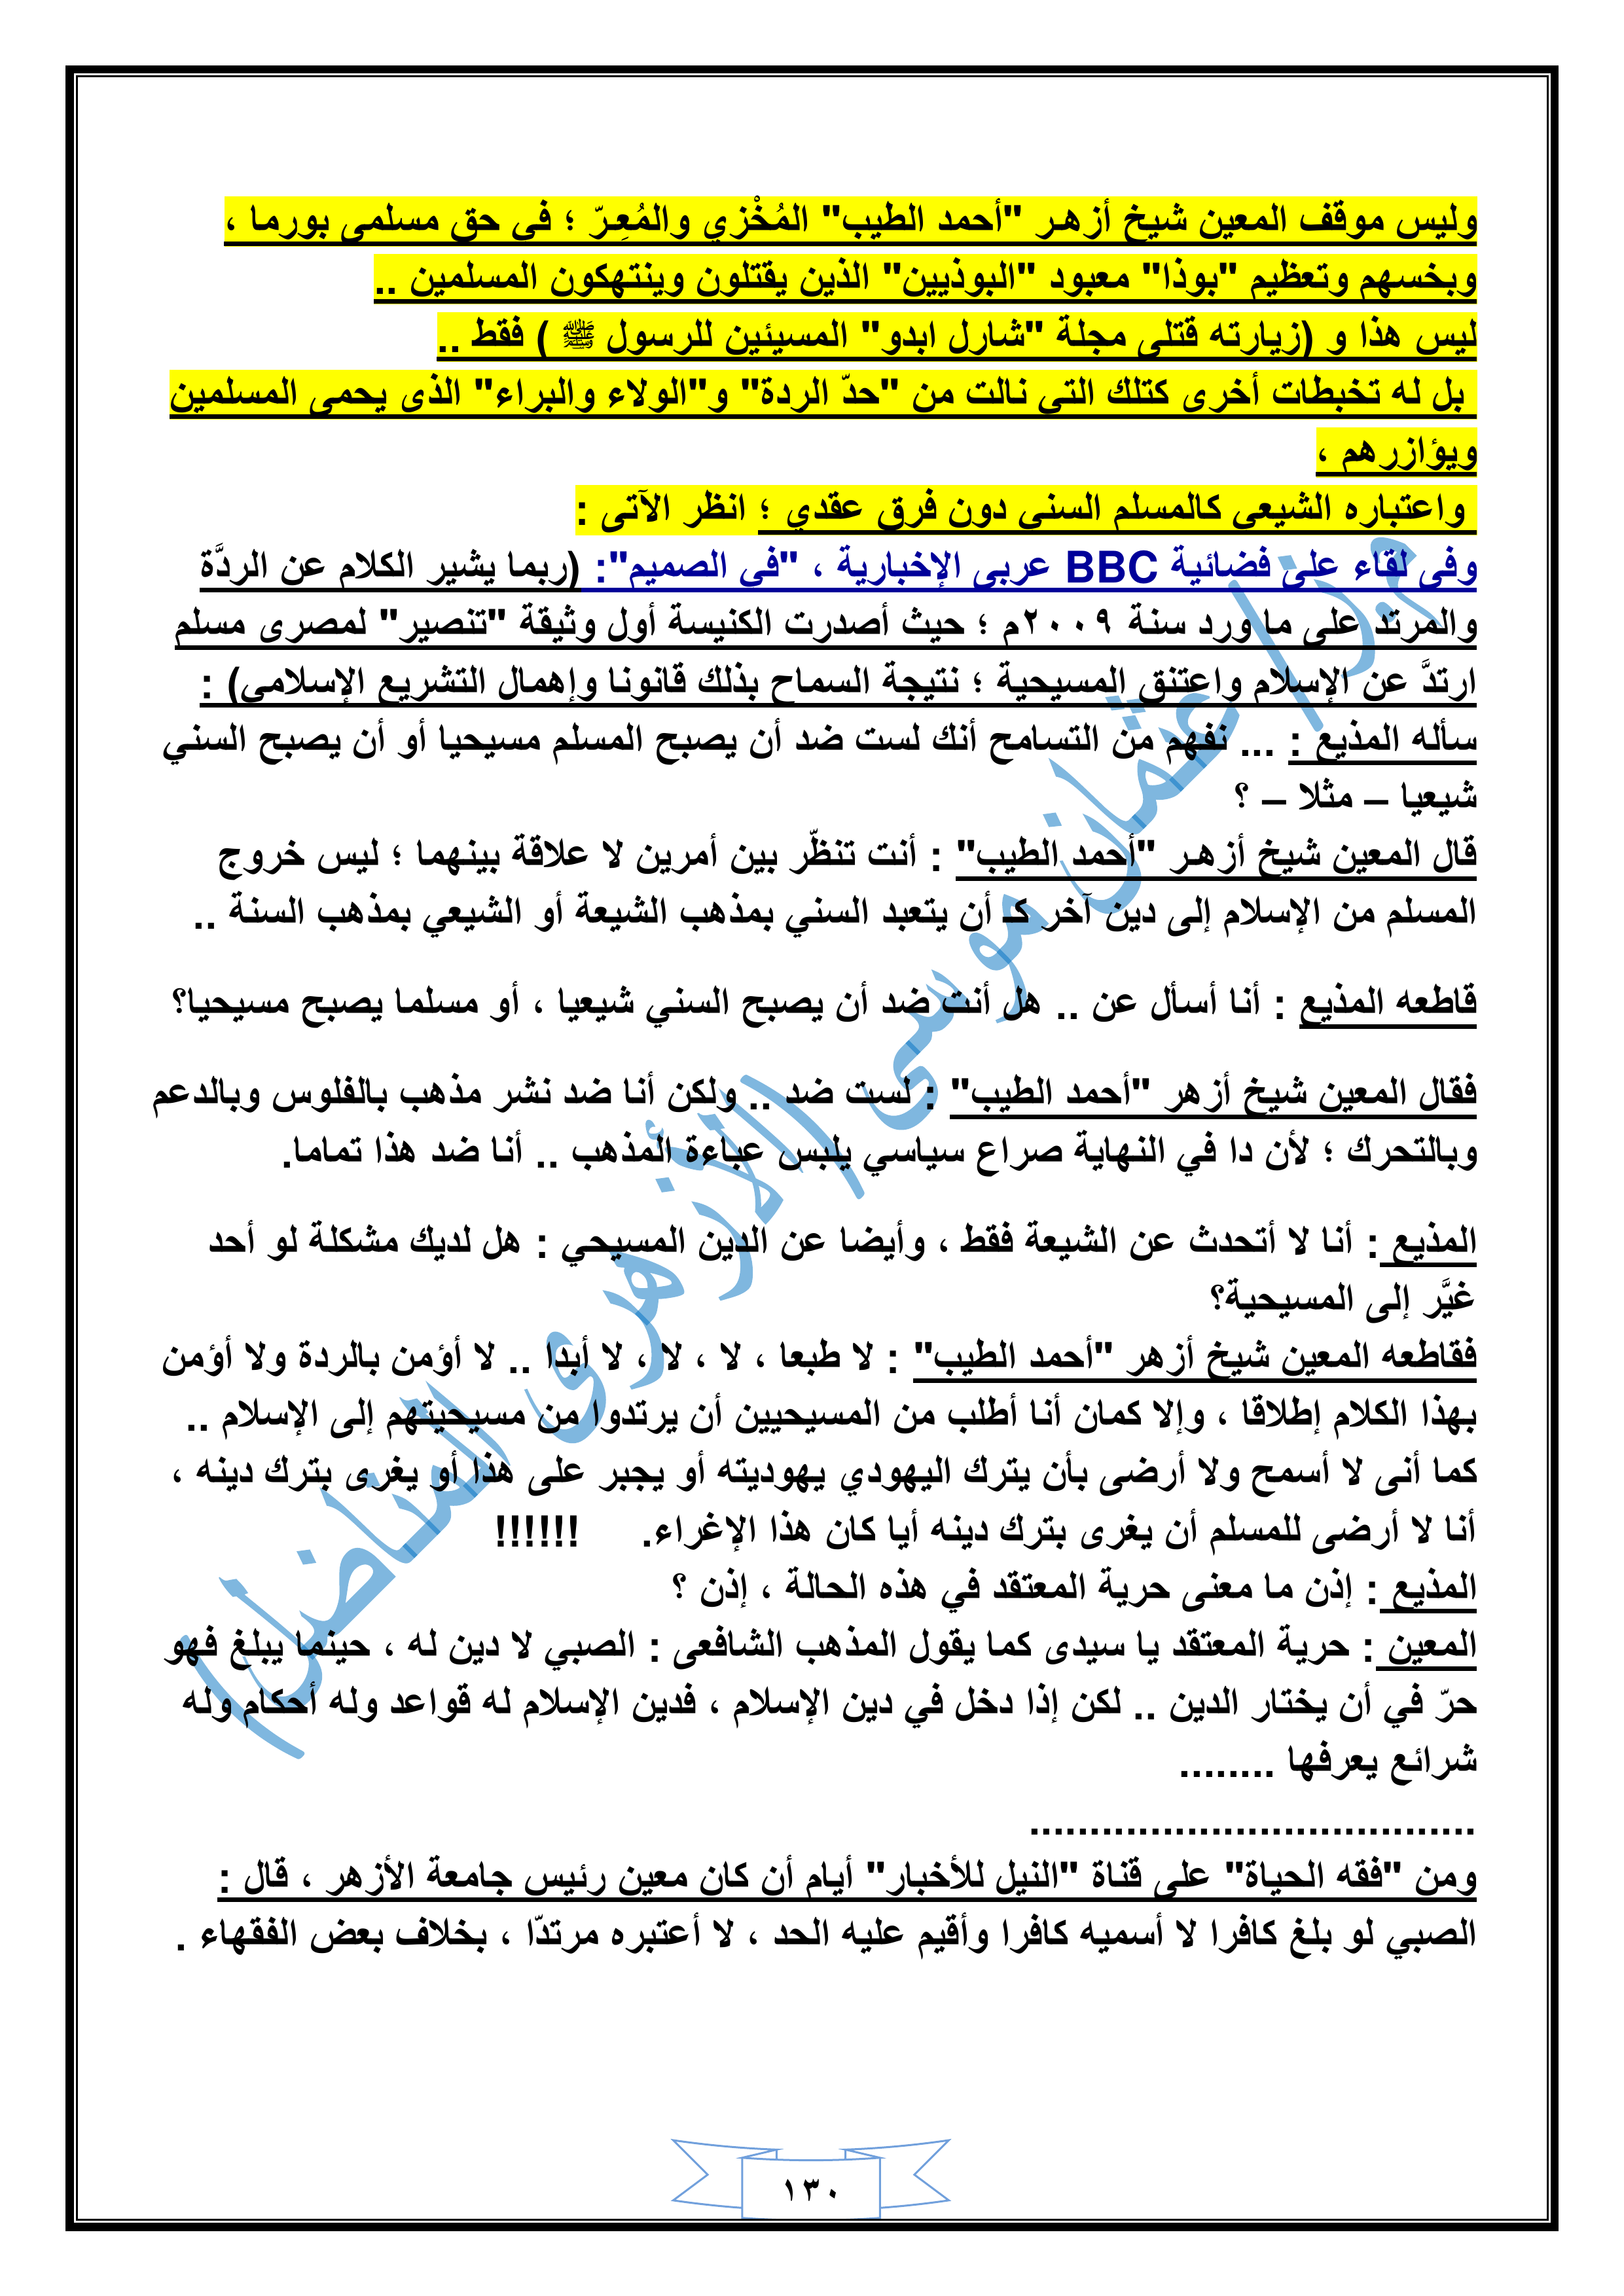 وليس موقف المعين شيخ أزهـر "أحمد الطيب" المُخْزي والمُعِـرّ ؛ فى حق مسلمى بورما ،
وبخسهم وتعظيم "بوذا" معبود "البوذيين" الذين يقتلون وينتهكون المسلمين ..
ليس هذا و (زيارته قتلى مجلة "شارل ابدو" المسيئين للرسول ﷺ ) فقط ..
بل له تخبطات أخرى كتلك التي نالت من "حدّ الردة" و"الولاء والبراء" الذى يحمى المسلمين
ويؤازرهم ،
واعتباره الشيعى كالمسلم السنى دون فرق عقدي ؛ انظر الآتى :
وفى لقاء على فضائية BBC عربى الإخبارية ، "فى الصميم": (ربما يشير الكلام عن الردَّة
والمرتد على ما ورد سنة ٢٠٠٩م ؛ حيث أصدرت الكنيسة أول وثيقة "تنصير" لمصرى مسلم
ارتدَّ عن الإسلام واعتنق المسيحية ؛ نتيجة السماح بذلك قانونا وإهمال التشريع الإسلامى) :
سأله المذيع : ... نفهم من التسامح أنك لست ضد أن يصبح المسلم مسيحيا أو أن يصبح السني
شيعيا – مثلا – ؟
قال المعين شيخ أزهـر "أحمد الطيب" : أنت تنظّر بين أمرين لا علاقة بينهما ؛ ليس خروج
المسلم من الإسلام إلى دين آخر كـ أن يتعبد السني بمذهب الشيعة أو الشيعي بمذهب السنة ..
قاطعه المذيع : أنا أسأل عن .. هل أنت ضد أن يصبح السني شيعيا ، أو مسلما يصبح مسيحيا؟
فقال المعين شيخ أزهر "أحمد الطيب" : لست ضد .. ولكن أنا ضد نشر مذهب بالفلوس وبالدعم
وبالتحرك ؛ لأن دا في النهاية صراع سياسي يلبس عباءة المذهب .. أنا ضد هذا تماما.
المذيع : أنا لا أتحدث عن الشيعة فقط ، وأيضا عن الدين المسيحي : هل لديك مشكلة لو أحد
غيَّر إلى المسيحية؟
فقاطعه المعين شيخ أزهر "أحمد الطيب" : لا طبعا ، لا ، لا ، لا أبدا .. لا أؤمن بالردة ولا أؤمن
بهذا الكلام إطلاقا ، وإلا كمان أنا أطلب من المسيحيين أن يرتدوا من مسيحيتهم إلى الإسلام ..
كما أنى لا أسمح ولا أرضى بأن يترك اليهودي يهوديته أو يجبر على هذا أو يغرى بترك دينه ،
أنا لا أرضى للمسلم أن يغرى بترك دينه أيا كان هذا الإغراء. !!!!!!
المذيع : إذن ما معنى حرية المعتقد في هذه الحالة ، إذن ؟
المعين : حرية المعتقد يا سيدى كما يقول المذهب الشافعى : الصبي لا دين له ، حينما يبلغ فهو
حرّ في أن يختار الدين .. لكن إذا دخل في دين الإسلام ، فدين الإسلام له قواعد وله أحكام وله
شرائع يعرفها ........
.....................................
ومن "فقه الحياة" على قناة "النيل للأخبار" أيام أن كان معين رئيس جامعة الأزهر ، قال :
الصبي لو بلغ كافرا لا أسميه كافرا وأقيم عليه الحد ، لا أعتبره مرتدّا ، بخلاف بعض الفقهاء .
م.ز/ عثمان موسى (الأزهرى المناضل)
١٣٠